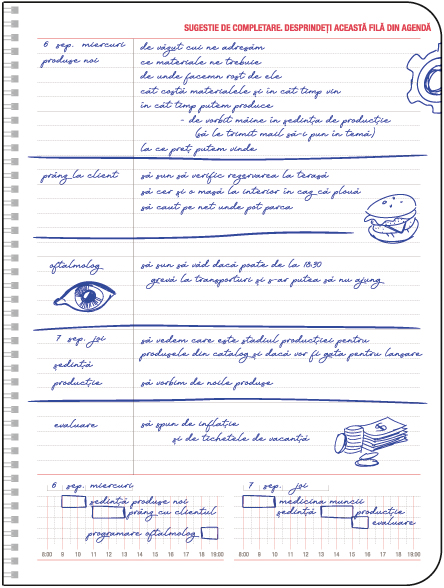 SUGESTIE DE COMPLETARE. DESPRINDEȚI ACEASTĂ FILĂ DIN AGENDĂ
6 sep. miercuri
de văzut cui ne adresăm
produse noi
ce materiale ne trebuie
de unde facemn rost de ele
cât costă materialele și în cât timp vin
în cât timp putem produce
- de vorbit mâine în ședința de producție
(să le trimit mail să-i pun în temă)
la ce preț putem vinde
prânz la client
să sun să verific rezervarea la terasă
să cer și o masă la interior în caz că plouă
să caut pe net unde pot parca
oftalmolog
să sun să văd dacă poate de la 18:30
grevă la transporturi și s-ar putea să nu ajung
7 sep. joi
să vedem care este stadiul producției pentru
ședință
produsele din catalog și dacă vor fi gata pentru lansare
producție
să vorbim de noile produse
evaluare
să spun de inflație
și de tichetele de vacanță
6 sep. miercuri
ședință produse noi
prânz cu clientul
programare oftalmolog
8:00 9 10 11 12 13 14 15 16 17 18 19:00
7 sep. joi
medicina muncii
ședință producție
evaluare
8:00 9 10 11 12 13 14 15 16 17 18 19:00